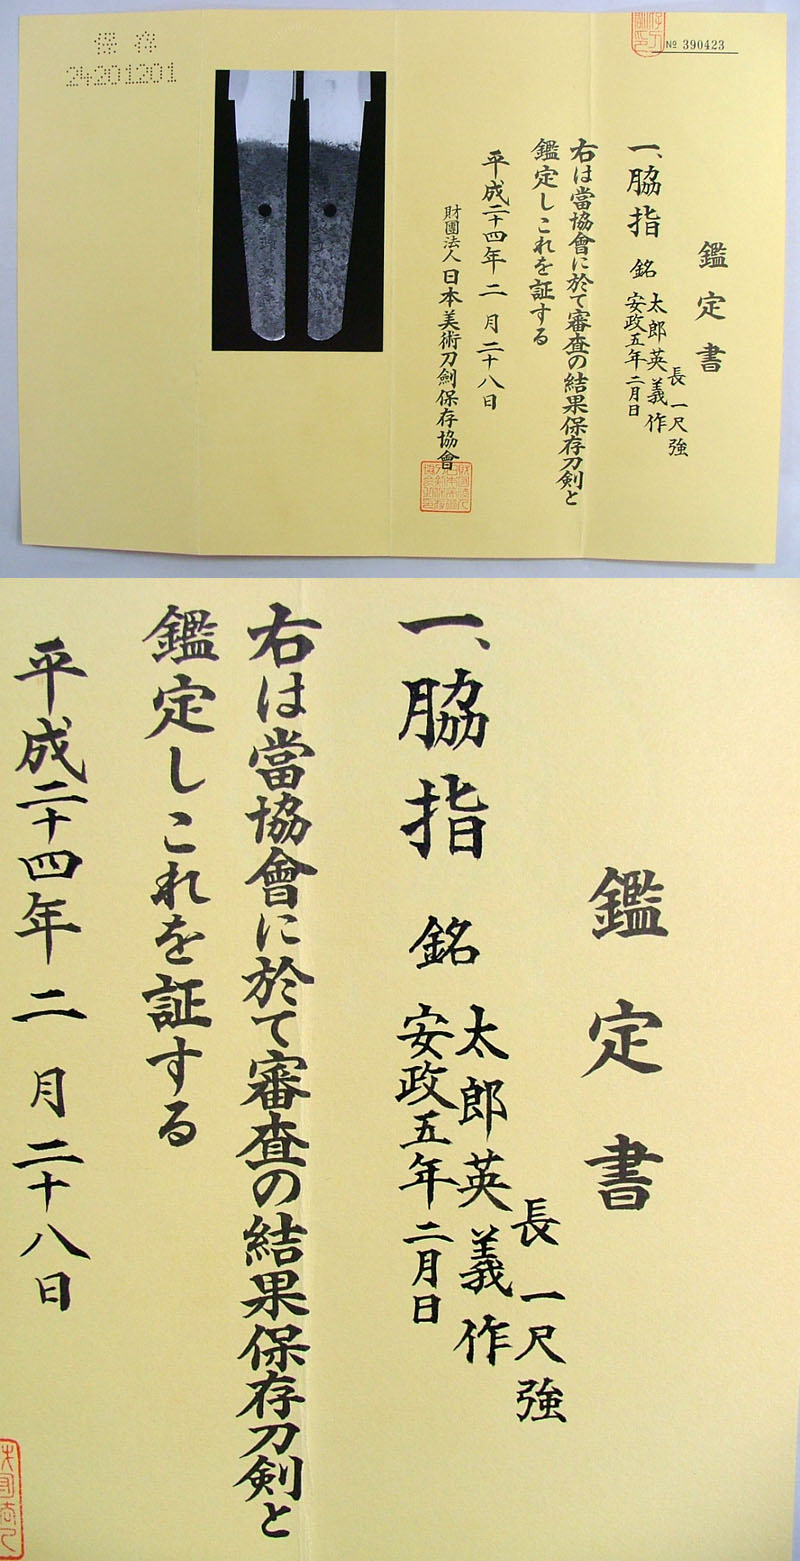 № 390423
鑑定書
一、脇指 銘 太郎英義作
安政五年二月日
長 一尺強
右は當協會に於て審査の結果保存刀剣と
鑑定しこれを証する
平成二十四年 二 月 二十八日
財團法人 日本美術刀剣保存協會
保存
24201201
鑑定書
長 一尺強
一、脇指 銘 太郎英義作
安政五年二月日
右は當協會に於て審査の結果保存刀剣と
鑑定しこれを証する
平成二十四年 二 月 二十八日